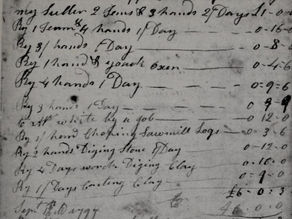 my Suller 2 Sons & 3 hands 2 Days £1-0-0
By 1 Team & 4 hands 1 Day — 0-16-0
By 3 hands 1 Day — 0-8-
By 1 hand & yoack oxen — 0-4-6
By 4 hands 1 Day — 0-9-
By 3 hands 1 Day — 0-9-
white by a job — 0-12-0
By 1 hand Choping Sawmill Logs — 0-3-6
By 2 hands Diging Stone 1 Day 0-12-0
By 4 Days work Diging Clay — 0-10-0
By 1 Days Carting Clay — 0-9-0
£6-0-3
6-0-3